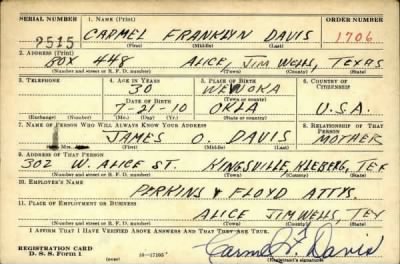 SERIAL NUMBER 1. NAME (Print) ORDER NUMBER
2515 CARMEL FRANKLYN DAVIS 1706
(First) (Middle) (Last)
2. ADDRESS (Print)
BOX 448 ALICE, JIM WELLS, TEXAS
(Number and street or R. F. D. number) (Town) (County) (State)
3. TELEPHONE 4. AGE IN YEARS 5. PLACE OF BIRTH 6. COUNTRY OF CITIZENSHIP
30 WEWOKA
(Town or county)
DATE OF BIRTH
7-21-10 OKLA U.S.A.
(Exchange) (Number) (Mo.) (Day) (Yr.) (State or country)
7. NAME OF PERSON WHO WILL ALWAYS KNOW YOUR ADDRESS 8. RELATIONSHIP OF THAT PERSON
JAMES O. DAVIS MOTHER
(First) (Middle) (Last)
9. ADDRESS OF THAT PERSON
302 W. ALICE ST. KINGSVILLE, KLEBERG, TEX
(Number and street or R. F. D. number) (Town) (County) (State)
10. EMPLOYER'S NAME
PERKINS & FLOYD ATTYS.
11. PLACE OF EMPLOYMENT OR BUSINESS
ALICE JIM WELLS, TEX
(Number and street or R. F. D. number) (Town) (County) (State)
I AFFIRM THAT I HAVE VERIFIED ABOVE ANSWERS AND THAT THEY ARE TRUE.
REGISTRATION CARD
D. S. S. Form 1 16-17105 Carmel F. Davis